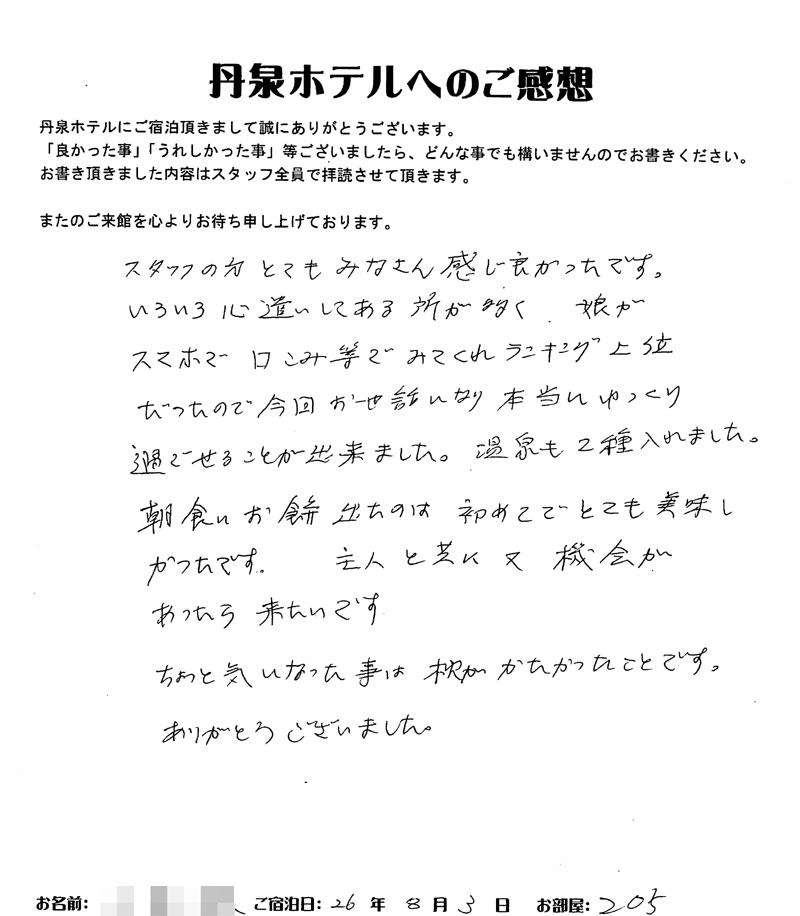 丹泉ホテルへのご感想
丹泉ホテルにご宿泊頂きまして誠にありがとうございます。
「良かった事」「うれしかった事」等ございましたら、どんな事でも構いませんのでお書きください。
お書き頂きました内容はスタッフ全員で拝読させて頂きます。
またのご来館を心よりお待ち申し上げております。
スタッフの方とてもみなさん感じ良かったです。
いろいろ心遣いしてある所が多く、娘が
スマホで口こみ等でみてくれランキング上位
だったので今回お世話になり本当にゆっくり
過ごせることが出来ました。温泉も2種入れました。
朝食にお餅出たのは初めてでとても美味し
かったです。主人と共に又機会が
あったら来たいです
ちょっと気になった事は枕がかたかったことです。
ありがとうございました。
お名前: ご宿泊日: 26 年 8 月 3 日 お部屋: 205